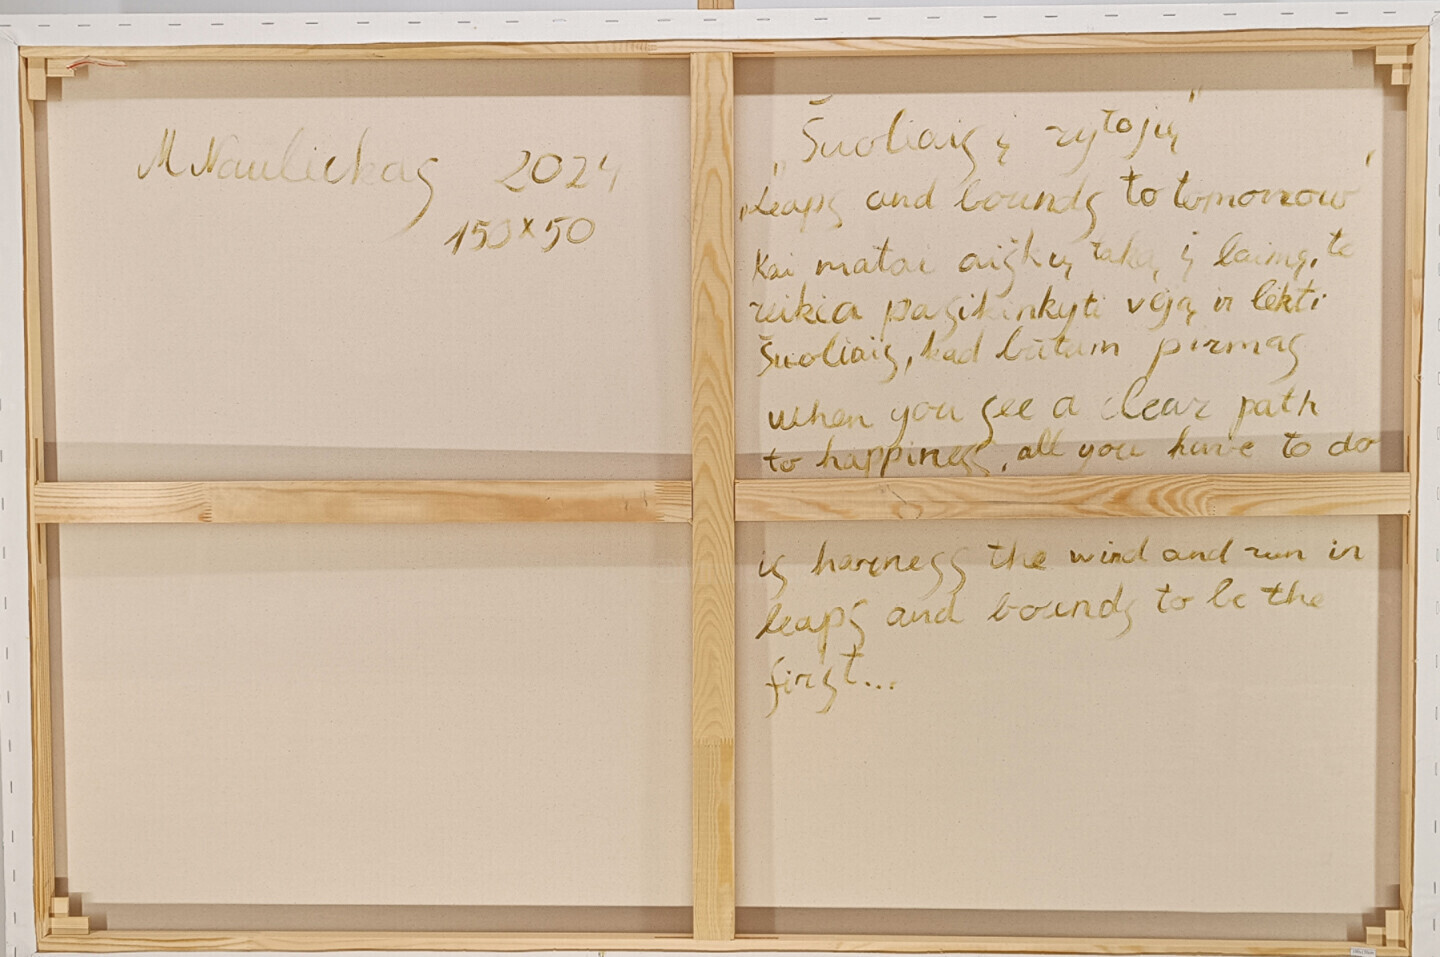 M Naulickas 2024
150x50
„Šuoliais į rytojų"
„Leaps and bounds to tomorrow"
Kai matai aiškų taką į laimę, te
reikia pasikinkyti vėją ir lėkti
Šuoliais, kad būtum pirmas
when you see a clear path
to happiness, all you have to do
is harness the wind and run in
leaps and bounds to be the
first...